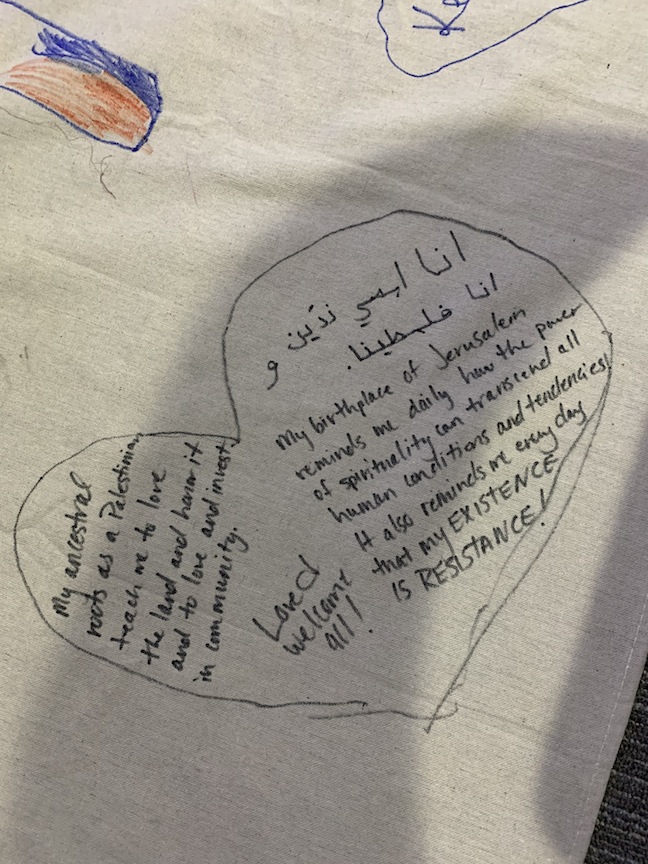 Ka
انا ايمي ندّين و
انا فلسطينا.
My birthplace of Jerusalem
reminds me daily how the power
of spirituality can transcend all
human conditions and tendencies!
It also reminds me every day
that my EXISTENCE
IS RESISTANCE!
My ancestral
roots as a Palestinian,
teach me to love
the land and honor it
and to love and invest
in community.
Loved
welcome
all!